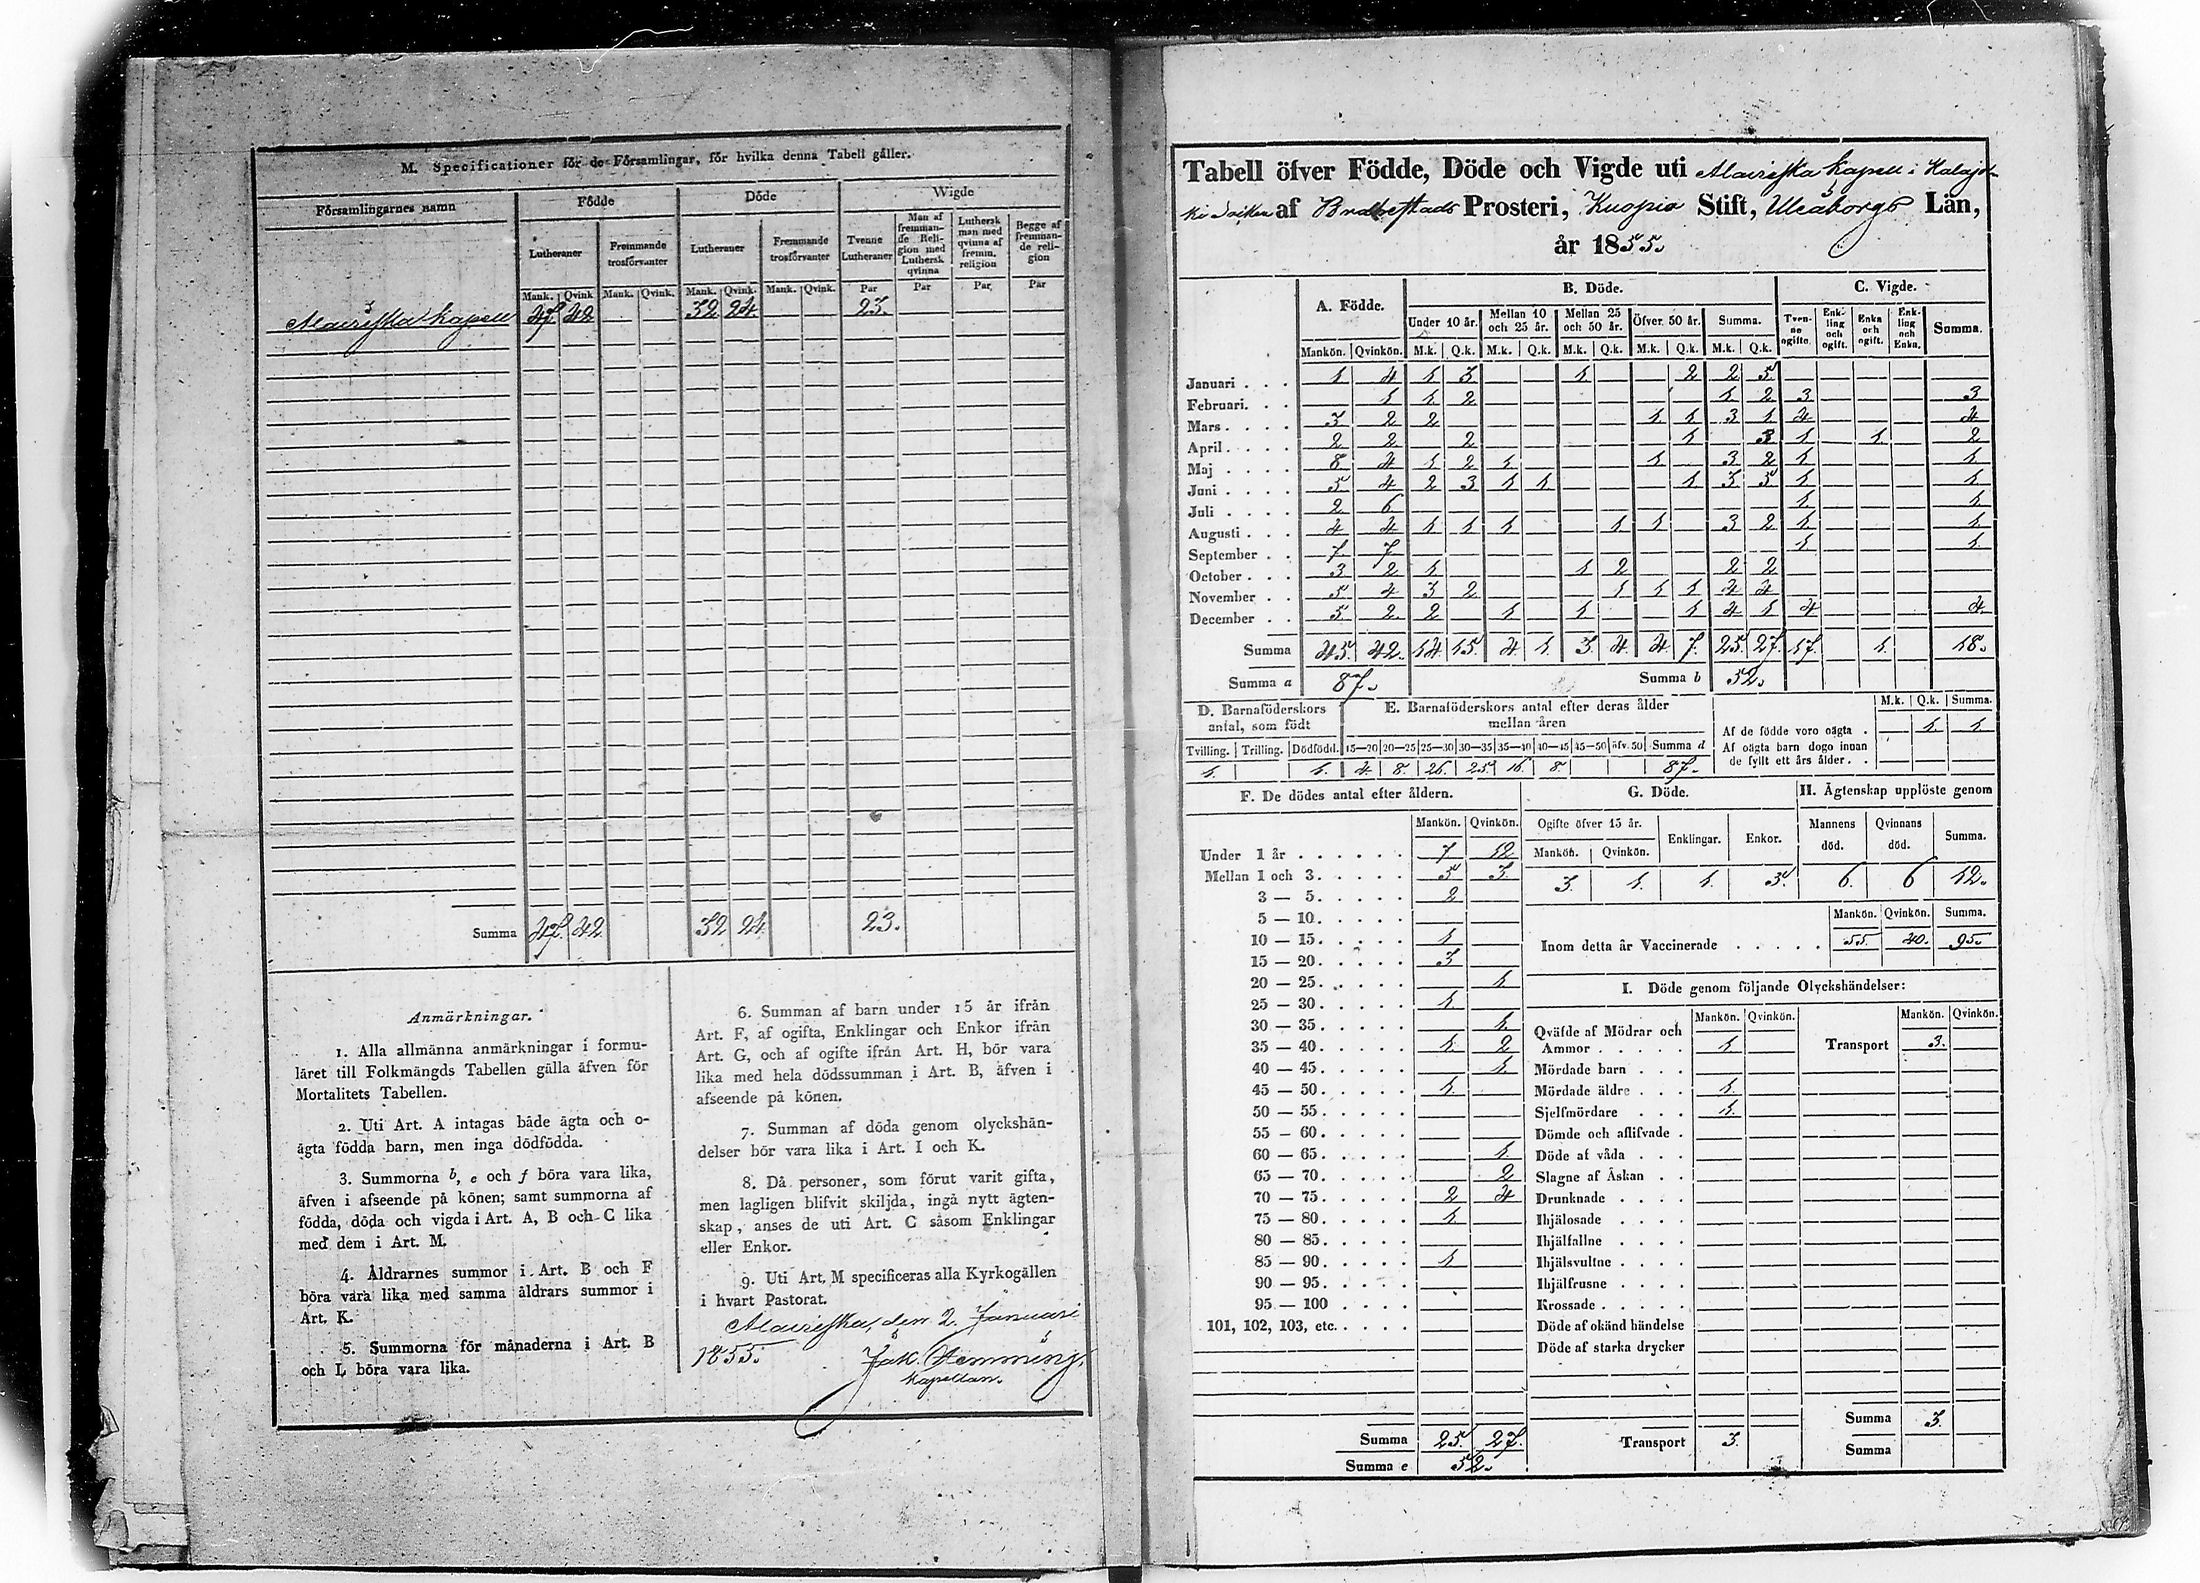 M. Specificationer för de Församlingar, för hvilka denna Tabell gäller.
Församlingarnes namn
Födde
Döde
Wigde
Lutheraner
Fremmande trosförvanter
Lutheraner
Fremmande trosförvanter
Tvenne Lutheraner
Man af fremmande Religion med Luthersk qvinna
Luthersk man med qvinna af fremm. religion
Begge af fremmande religion
Mank. Qvink Mank. Qvink. Mank. Qvink. Mank. Qvink. Par Par Par Par
kapell 47. 42 32 24 23.
Summa 47. 42 32 24 23.
Anmärkningar.
1. Alla allmänna anmärkningar i formu-
läret till Folkmängds Tabellen gälla äfven för
Mortalitets Tabellen.
2. Uti Art. A intagas både ägta och o-
ägta födda barn, men inga dödfödda.
3. Summorna b, e och f böra vara lika,
äfven i afseende på könen; samt summorna af
födda, döda och vigda i Art. A, B och C lika
med dem i Art. M.
4. Åldrarnes summor i Art. B och F
böra vara lika med samma åldrars summor i
Art. K.
5. Summorna för månaderna i Art. B
och L böra vara lika.
6. Summan af barn under 15 år ifrån
Art. F, af ogifta, Enklingar och Enkor ifrån
Art. G, och af ogifte ifrån Art. H, bör vara
lika med hela dödssumman i Art. B, äfven i
afseende på könen.
7. Summan af döda genom olyckshän-
delser bör vara lika i Art. I och K.
8. Då personer, som förut varit gifta,
men lagligen blifvit skiljda, ingå nytt ägten-
skap, anses de uti Art. C såsom Enklingar
eller Enkor.
9. Uti Art. M specificeras alla Kyrkogällen
i hvart Pastorat.
den 2. Januari
1855.
Jak. Hemming.
kapellan.
Tabell öfver Födde, Döde och Vigde uti kapell i Kalajo-
ki Socken af Brahestads Prosteri, Kuopio Stift, Uleåborgs Län,
år 1855.
A. Födde.
B. Döde.
C. Vigde.
Under 10 år. Mellan 10 och 25 år. Mellan 25 och 50 år. Öfver 50 år. Summa.
Tvenne ogifte. Enkling och ogift. Enka och ogift. Enkling och Enka. Summa.
Mankön. Qvinkön. M.k. Q.k. M.k. Q.k. M.k. Q.k. M.k. Q.k. M.k. Q.k.
Januari . . . 1 4 1 3 1 2 2 5
Februari. . . 1 1 2 1 2 3 3
Mars . . . . 3 2 2 1 1 3 1 4 4
April . . . . 2 2 2 1 3 1 1 2
Maj . . . . 8 4 1 2 1 1 3 2 1 1
Juni . . . . 5 4 2 3 1 1 1 3 5 1 1
Juli . . . . 2 6 1 1
Augusti . . . 4 4 1 1 1 1 1 3 2 1 1
September . . 7 7 1 1
October . . . 3 2 1 1 2 2 2
November . . 5 4 3 2 1 1 1 4 4
December . . 5 2 2 1 1 1 4 1 4 4
Summa 45. 42. 14. 15. 4 1. 3. 4 4 7. 25. 27. 17. 1. 18.
Summa a 87. Summa b 52.
D. Barnaföderskors antal, som född
E. Barnaföderskors antal efter deras ålder mellan åren
Tvilling. Trilling. Dödfödd. 15—20 20—25 25—30 30—35 35—40 40—45 45—50 öfv. 50 Summa d
1. 1. 4. 8. 26. 25. 16. 8. 87.
M.k. Q.k. Summa.
Af de födde voro oägta . 1 1
Af oägta barn dogo innan
de fyllt ett års ålder. .
F. De dödes antal efter åldern.
Mankön. Qvinkön.
Under 1 år . . . . . . 7 12
Mellan 1 och 3. . . . . 5 3.
3 — 5. . . . . 2
5 — 10. . . . .
10 — 15. . . . . 1
15 — 20. . . . . 3
20 — 25. . . . . 1
25 — 30. . . . . 1
30 — 35. . . . . 1.
35 — 40. . . . . 1. 2
40 — 45. . . . . 1.
45 — 50. . . . . 1.
50 — 55. . . . .
55 — 60. . . . .
60 — 65. . . . . 1.
65 — 70. . . . . 2
70 — 75. . . . . 2 4
75 — 80. . . . . 1.
80 — 85. . . . .
85 — 90. . . . . 1
90 — 95. . . . .
95 — 100 . . . .
101, 102, 103, etc. . . . .
Summa 25. 27.
Summa e 52.
G. Döde.
Ogifte öfver 15 år. Enklingar. Enkor.
Mankön. Qvinkön.
3. 1. 1. 3.
H. Ägtenskap upplöste genom
Mannens död. Qvinnans död. Summa.
6. 6 12.
Mankön. Qvinkön. Summa.
Inom detta år Vaccinerade . . . . . 55. 40. 95.
I. Döde genom följande Olyckshändelser:
Mankön. Qvinkön. Mankön. Qvinkön.
Qväfde af Mödrar och
Ammor . . . . . 1. Transport 3.
Mördade barn . . .
Mördade äldre . . . 1.
Sjelfmördare . . . 1.
Dömde och aflifvade .
Döde af våda . . .
Slagne af Åskan . .
Drunknade . . . .
Ihjälosade . . . .
Ihjälfallne . . . .
Ihjälsvultne . . . .
Ihjälfrusne . . . .
Krossade . . . . .
Döde af okänd händelse
Döde af starka drycker
Summa 3.
Transport 3. Summa